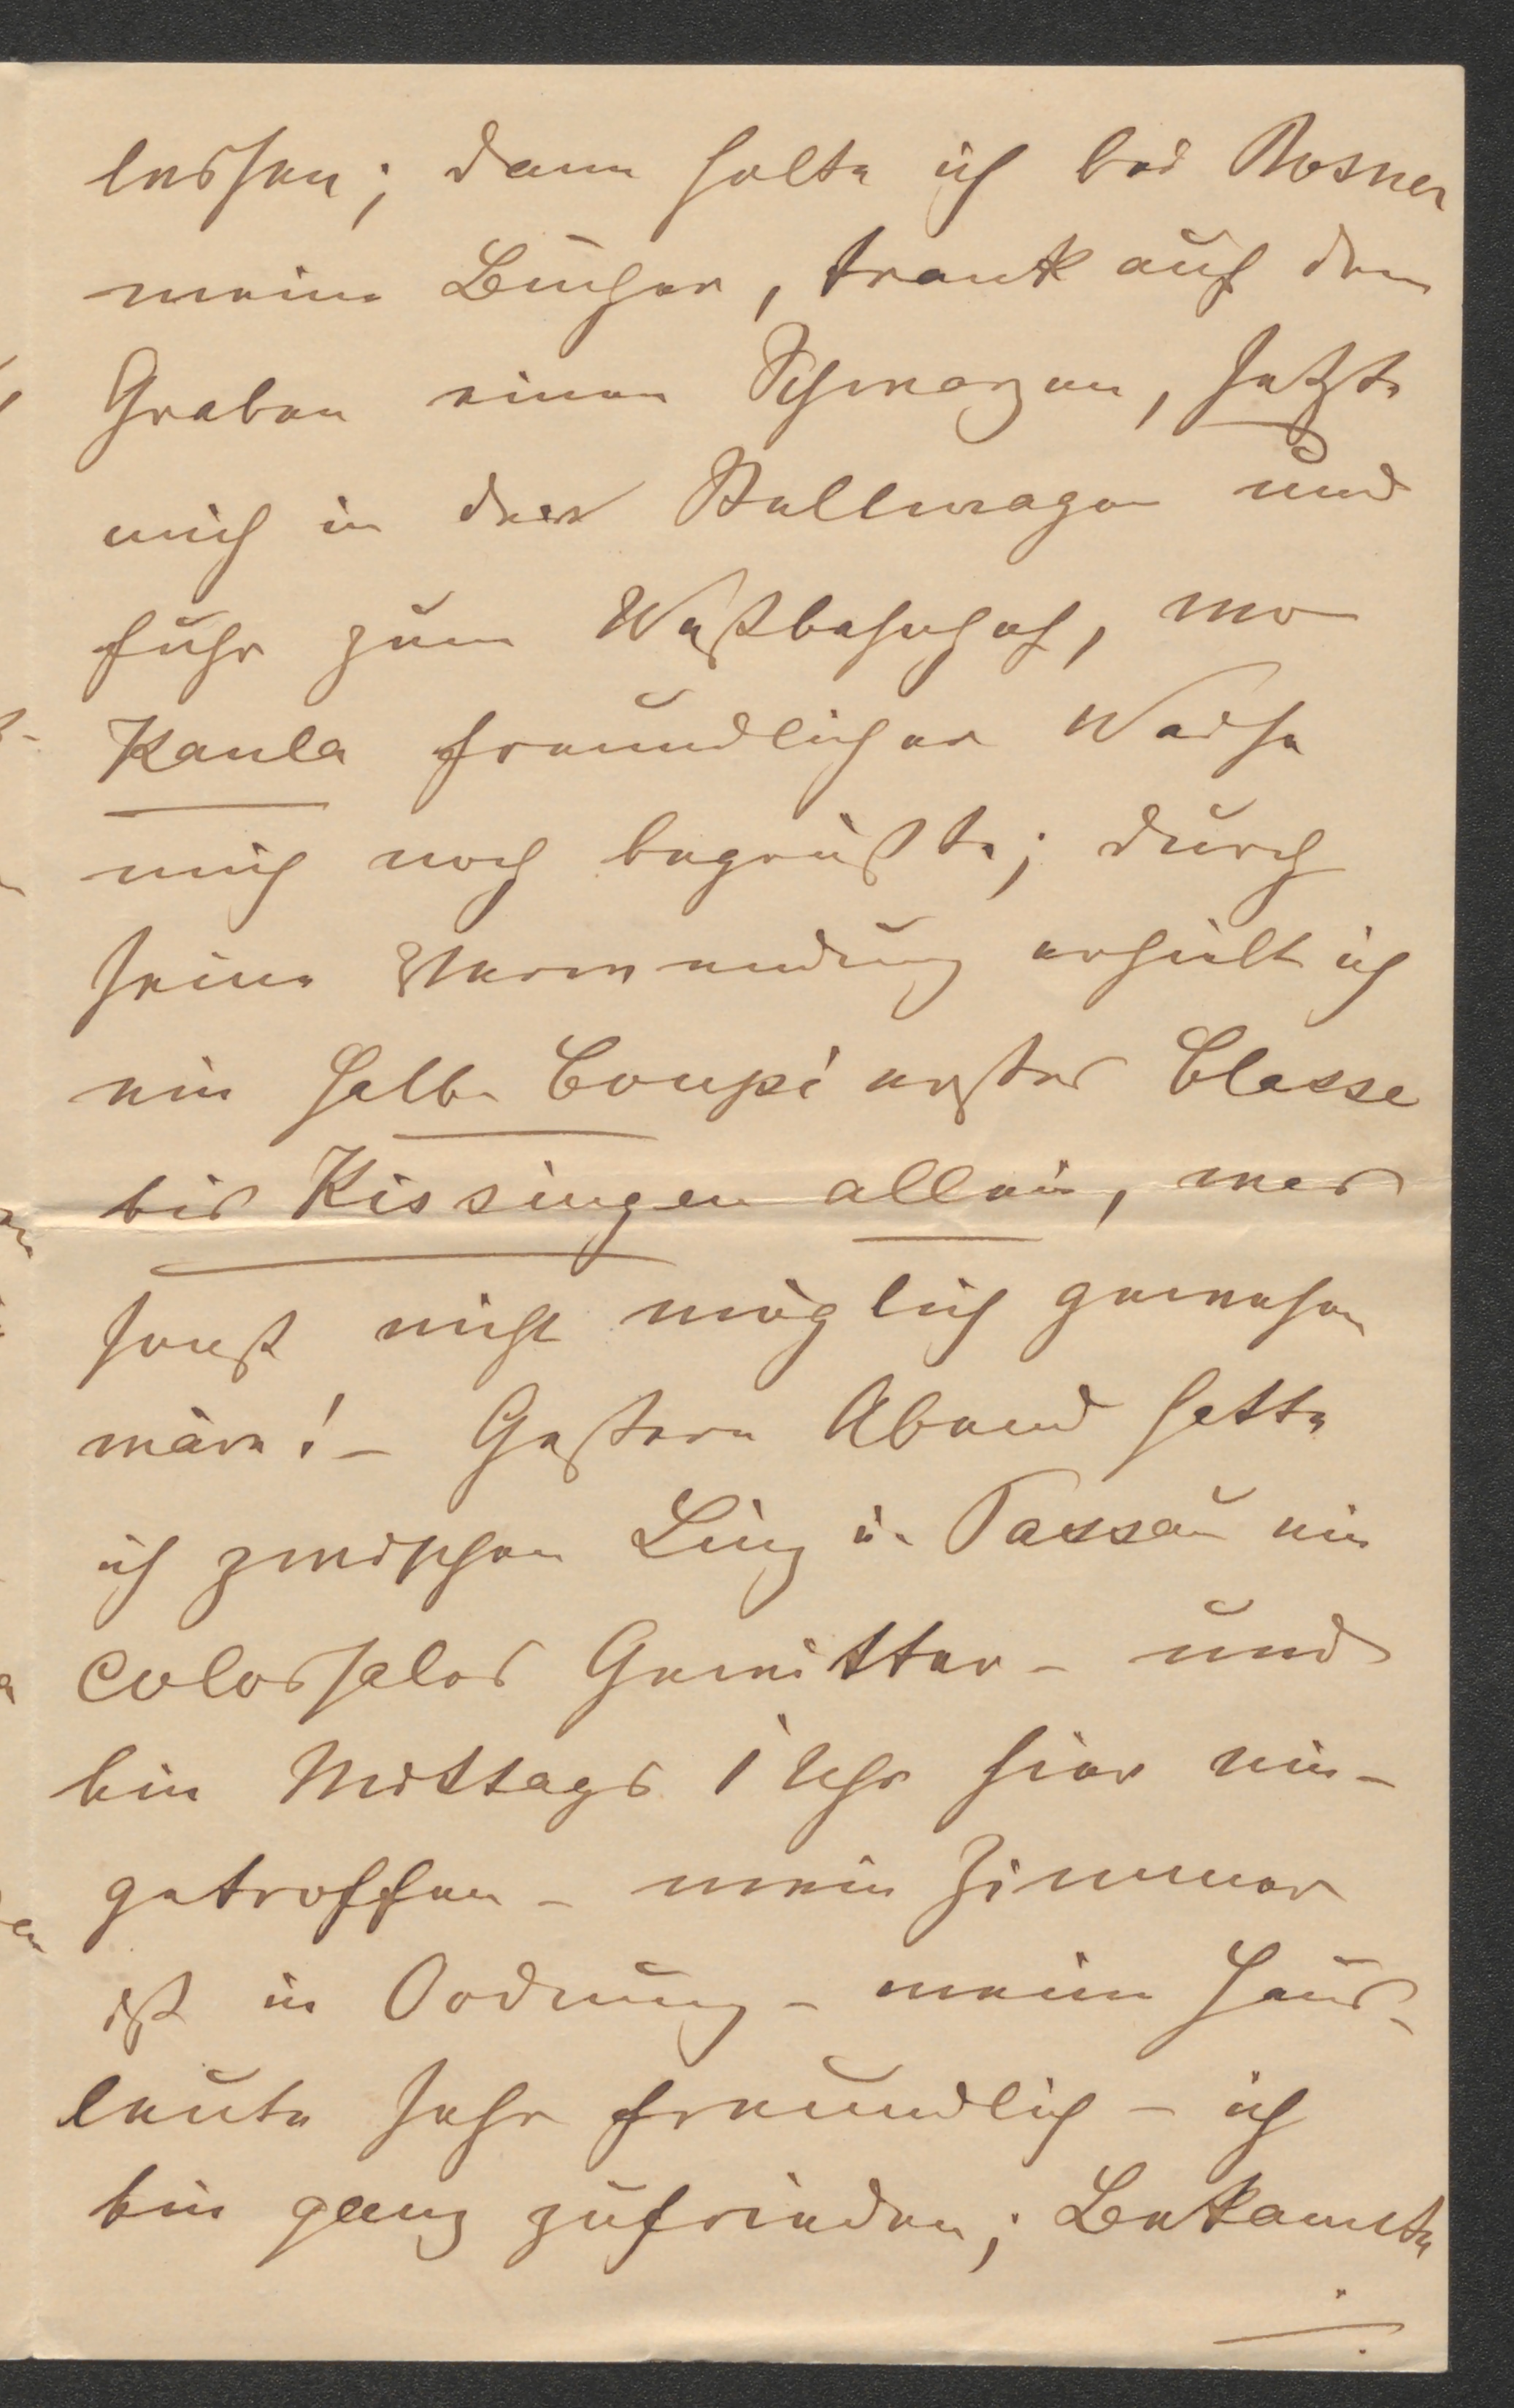 lassen; dann holte ich bei Rosner
meine Bücher, trank auf dem
Graben einen Schwarzen, setzte
mich in den Stellwagen und
fuhr zum Westbahnhof, wo
Kaula freundlicher Weise
mich noch begrüßte; durch
seine Verwendung erhielt ich
ein halbes Coupé erster Classe
bis Kissingen allein, was
sonst nicht möglich gewesen
wäre! – Gestern Abend hatte
ich zwischen Linz u. Passau ein
colossales Gewitter – und
bin Mittags 1 Uhr hier ein-
getroffen – mein Zimmer
ist in Ordnung – meine Haus-
leute sehr freundlich – ich
bin ganz zufrieden; Bekannte